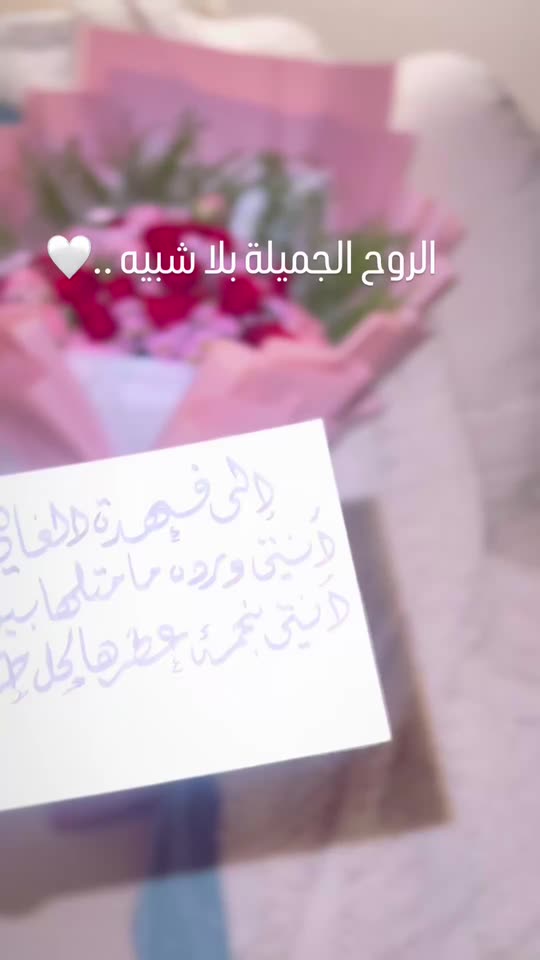 الروح الجميلة بلا شبيه ..🤍
إلى فهدة الغا
أنتي ورده ما مثلها
أنتي نجمة عطرها لكل